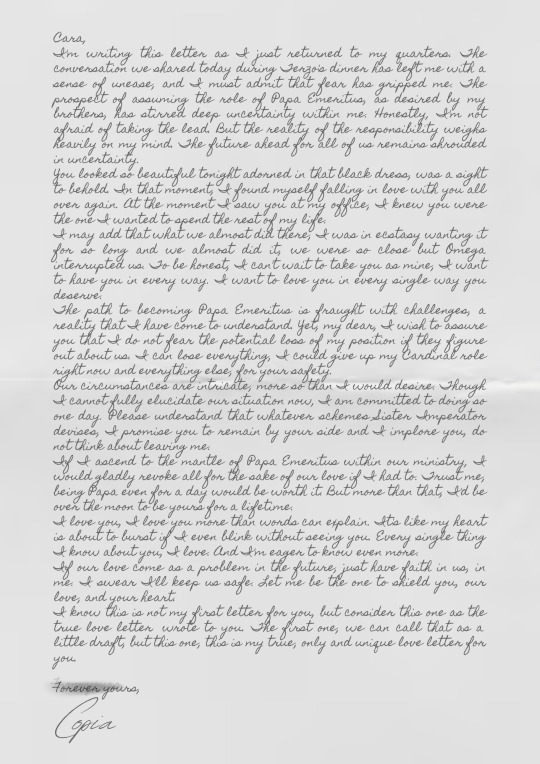 Cara,
I'm writing this letter as I just returned to my quarters. The
conversation we shared today during Terzo's dinner has left me with a
sense of unease, and I must admit that fear has gripped me. The
prospect of assuming the role of Papa Emeritus, as desired by my
brothers, has stirred deep uncertainty within me. Honestly, I'm not
afraid of taking the lead. But the reality of the responsibility weighs
heavily on my mind. The future ahead for all of us remains shrouded
in uncertainty.
You looked so beautiful tonight adorned in that black dress, was a sight
to behold. In that moment, I found myself falling in love with you all
over again. At the moment I saw you at my office, I knew you were
the one I wanted to spend the rest of my life.
I may add that what we almost did there, I was in ecstasy wanting it
for so long and we almost did it, we were so close but Omega
interrupted us. To be honest, I can't wait to take you as mine, I want
to have you in every way. I want to love you in every single way you
deserve.
The path to becoming Papa Emeritus is fraught with challenges, a
reality that I have come to understand. Yet, my dear, I wish to assure
you that I do not fear the potential loss of my position if they figure
out about us. I can lose everything, I could give up my Cardinal role
right now and everything else, for your safety.
Our circumstances are intricate, more so than I would desire. Though
I cannot fully elucidate our situation now, I am committed to doing so
one day. Please understand that whatever schemes Sister Imperator
devises, I promise you to remain by your side and I implore you, do
not think about leaving me.
If I ascend to the mantle of Papa Emeritus within our ministry, I
would gladly revoke all for the sake of our love if I had to. Trust me,
being Papa even for a day would be worth it. But more than that, I'd be
over the moon to be yours for a lifetime.
I love you, I love you more than words can explain. It's like my heart
is about to burst if I even blink without seeing you. Every single thing
I know about you, I love. And I'm eager to know even more.
If our love come as a problem in the future, just have faith in us, in
me. I swear I'll keep us safe. Let me be the one to shield you, our
love, and your heart.
I know this is not my first letter for you, but consider this one as the
true love letter wrote to you. The first one, we can call that as a
little draft, but this one, this is my true, only and unique love letter for
you.
Forever yours,
Copia